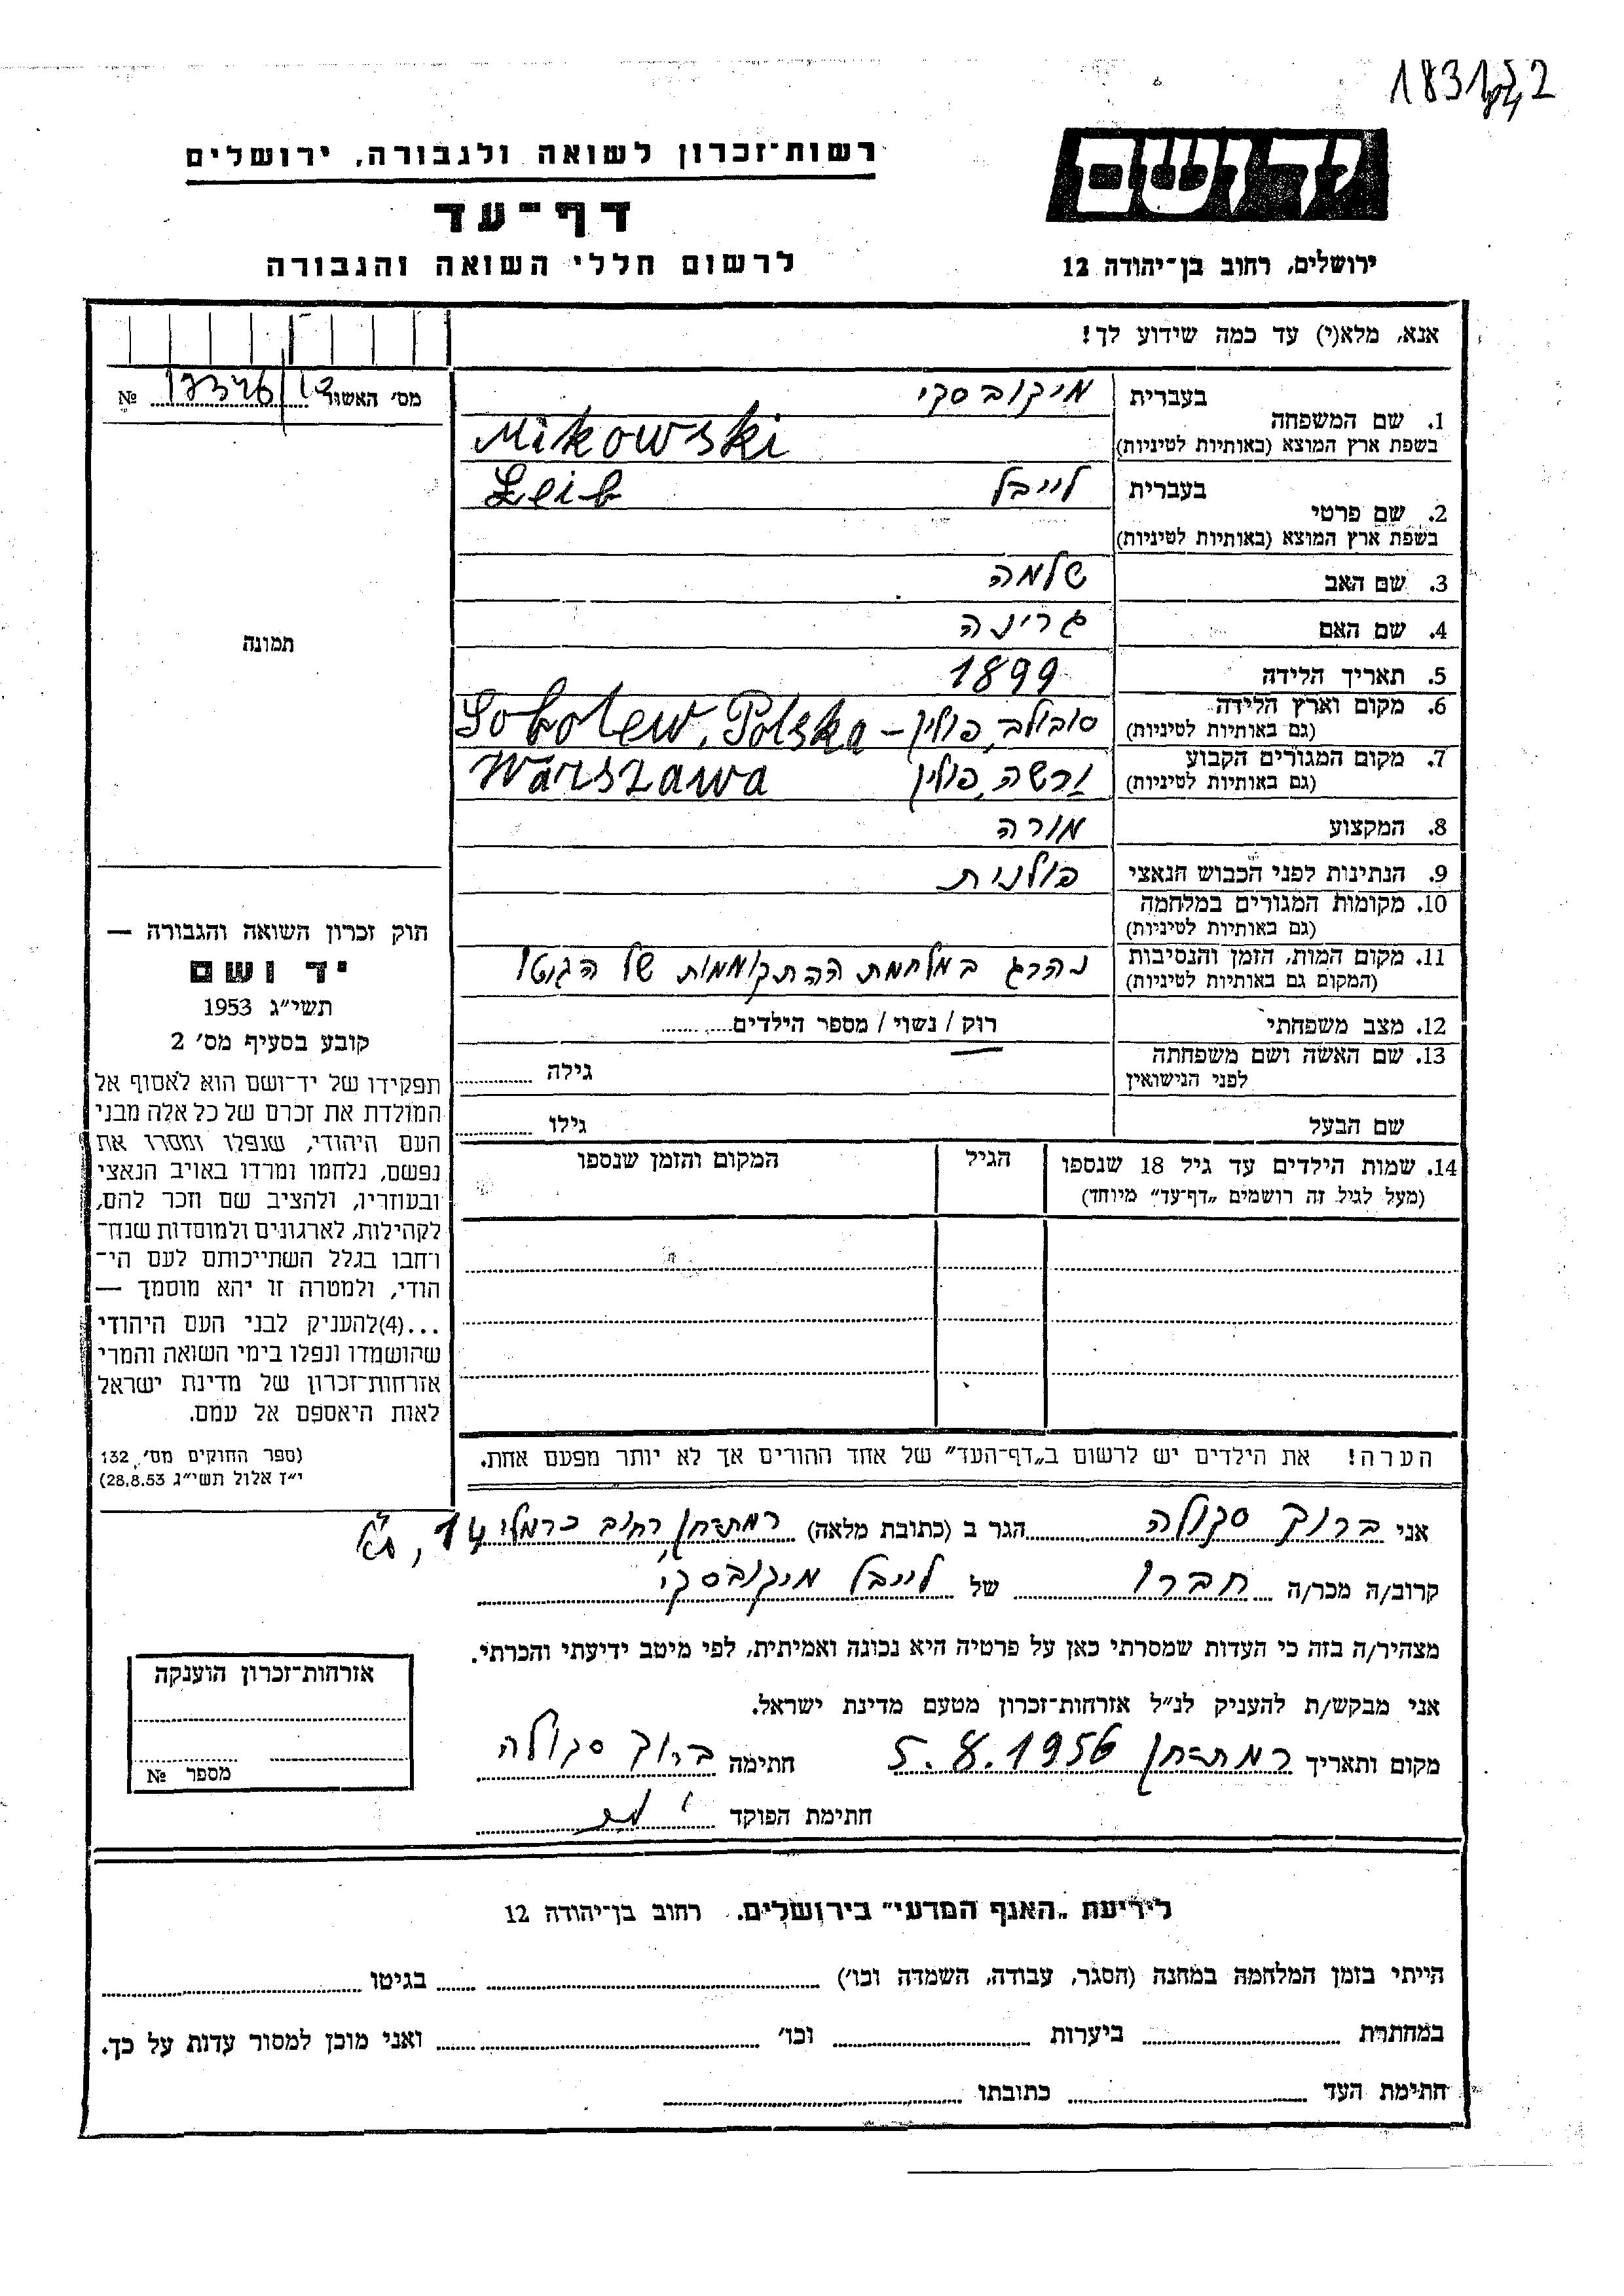 רשות־זכרון לשואה ולגבורה, ירושלים
יד ושם
דף־עד
לרשום חללי השואה והגבורה
ירושלים, רחוב בן־יהודה 12
אנא, מלא(י) עד כמה שידוע לך!
מס' האשור № 
1. שם המשפחה
בעברית מיקובסקי
בשפת ארץ המוצא (באותיות לטיניות) Mikowski
2. שם פרטי
בעברית לייבל Leib
בשפת ארץ המוצא (באותיות לטיניות)
3. שם האב שלמה
4. שם האם גרינה
5. תאריך הלידה 1899
6. מקום וארץ הלידה (גם באותיות לטיניות) סובולב, פולין – Sobolew, Polska
7. מקום המגורים הקבוע (גם באותיות לטיניות) ורשה, פולין Warszawa
8. המקצוע מורה
9. הנתינות לפני הכבוש הנאצי פולנית
10. מקומות המגורים במלחמה (גם באותיות לטיניות)
11. מקום המות, הזמן והנסיבות (המקום גם באותיות לטיניות) נהרג במלחמת ההתקוממות של הגטו
12. מצב משפחתי רוק / נשוי / מספר הילדים
13. שם האשה ושם משפחתה לפני הנישואין גילה
שם הבעל גילו
14. שמות הילדים עד גיל 18 שנספו (מעל לגיל זה רושמים „דף־עד" מיוחד) הגיל המקום והזמן שנספו
הערה! את הילדים יש לרשום ב„דף־העד" של אחד ההורים אך לא יותר מפעם אחת.
תמונה
חוק זכרון השואה והגבורה —
יד ושם
תשי"ג 1953
קובע בסעיף מס' 2
תפקידו של יד־ושם הוא לאסוף אל
המולדת את זכרם של כל אלה מבני
העם היהודי, שנפלו ומסרו את
נפשם, נלחמו ומרדו באויב הנאצי
ובעוזריו, ולהציב שם וזכר להם,
לקהילות, לארגונים ולמוסדות שנח־
רבו בגלל השתייכותם לעם הי־
הודי, ולמטרה זו יהא מוסמך —
...(4)להעניק לבני העם היהודי
שהושמדו ונפלו בימי השואה והמרי
אזרחות־זכרון של מדינת ישראל
לאות היאספם אל עמם.
(ספר החוקים מס' 132,
י"ז אלול תשי"ג 28.8.53)
אני ברוך סקולה הגר ב (כתובת מלאה) רמת־חן רחוב כרמלי 14,
קרוב/ה מכר/ה חברו של לייבל מיקובסקי
מצהיר/ה בזה כי העדות שמסרתי כאן על פרטיה היא נכונה ואמיתית, לפי מיטב ידיעתי והכרתי.
אני מבקש/ת להעניק לנ"ל אזרחות־זכרון מטעם מדינת ישראל.
מקום ותאריך רמת־חן 5.8.1956 חתימה ברוך סקולה
חתימת הפוקד
אזרחות־זכרון הוענקה
מספר №
לידיעת „האגף המדעי" בירושלים. רחוב בן־יהודה 12
הייתי בזמן המלחמה במחנה (הסגר, עבודה, השמדה וכו') בגיטו
במחתרת ביערות וכו' ואני מוכן למסור עדות על כך.
חתימת העד כתובתו